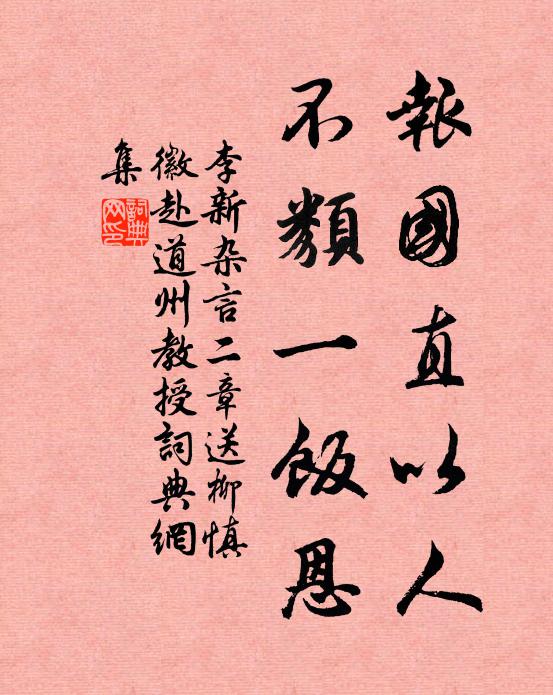 報國直以人
不類一飯恩
李新杂言二章送柳慎
徽赴道州教授詞典網
集
詞典
网印